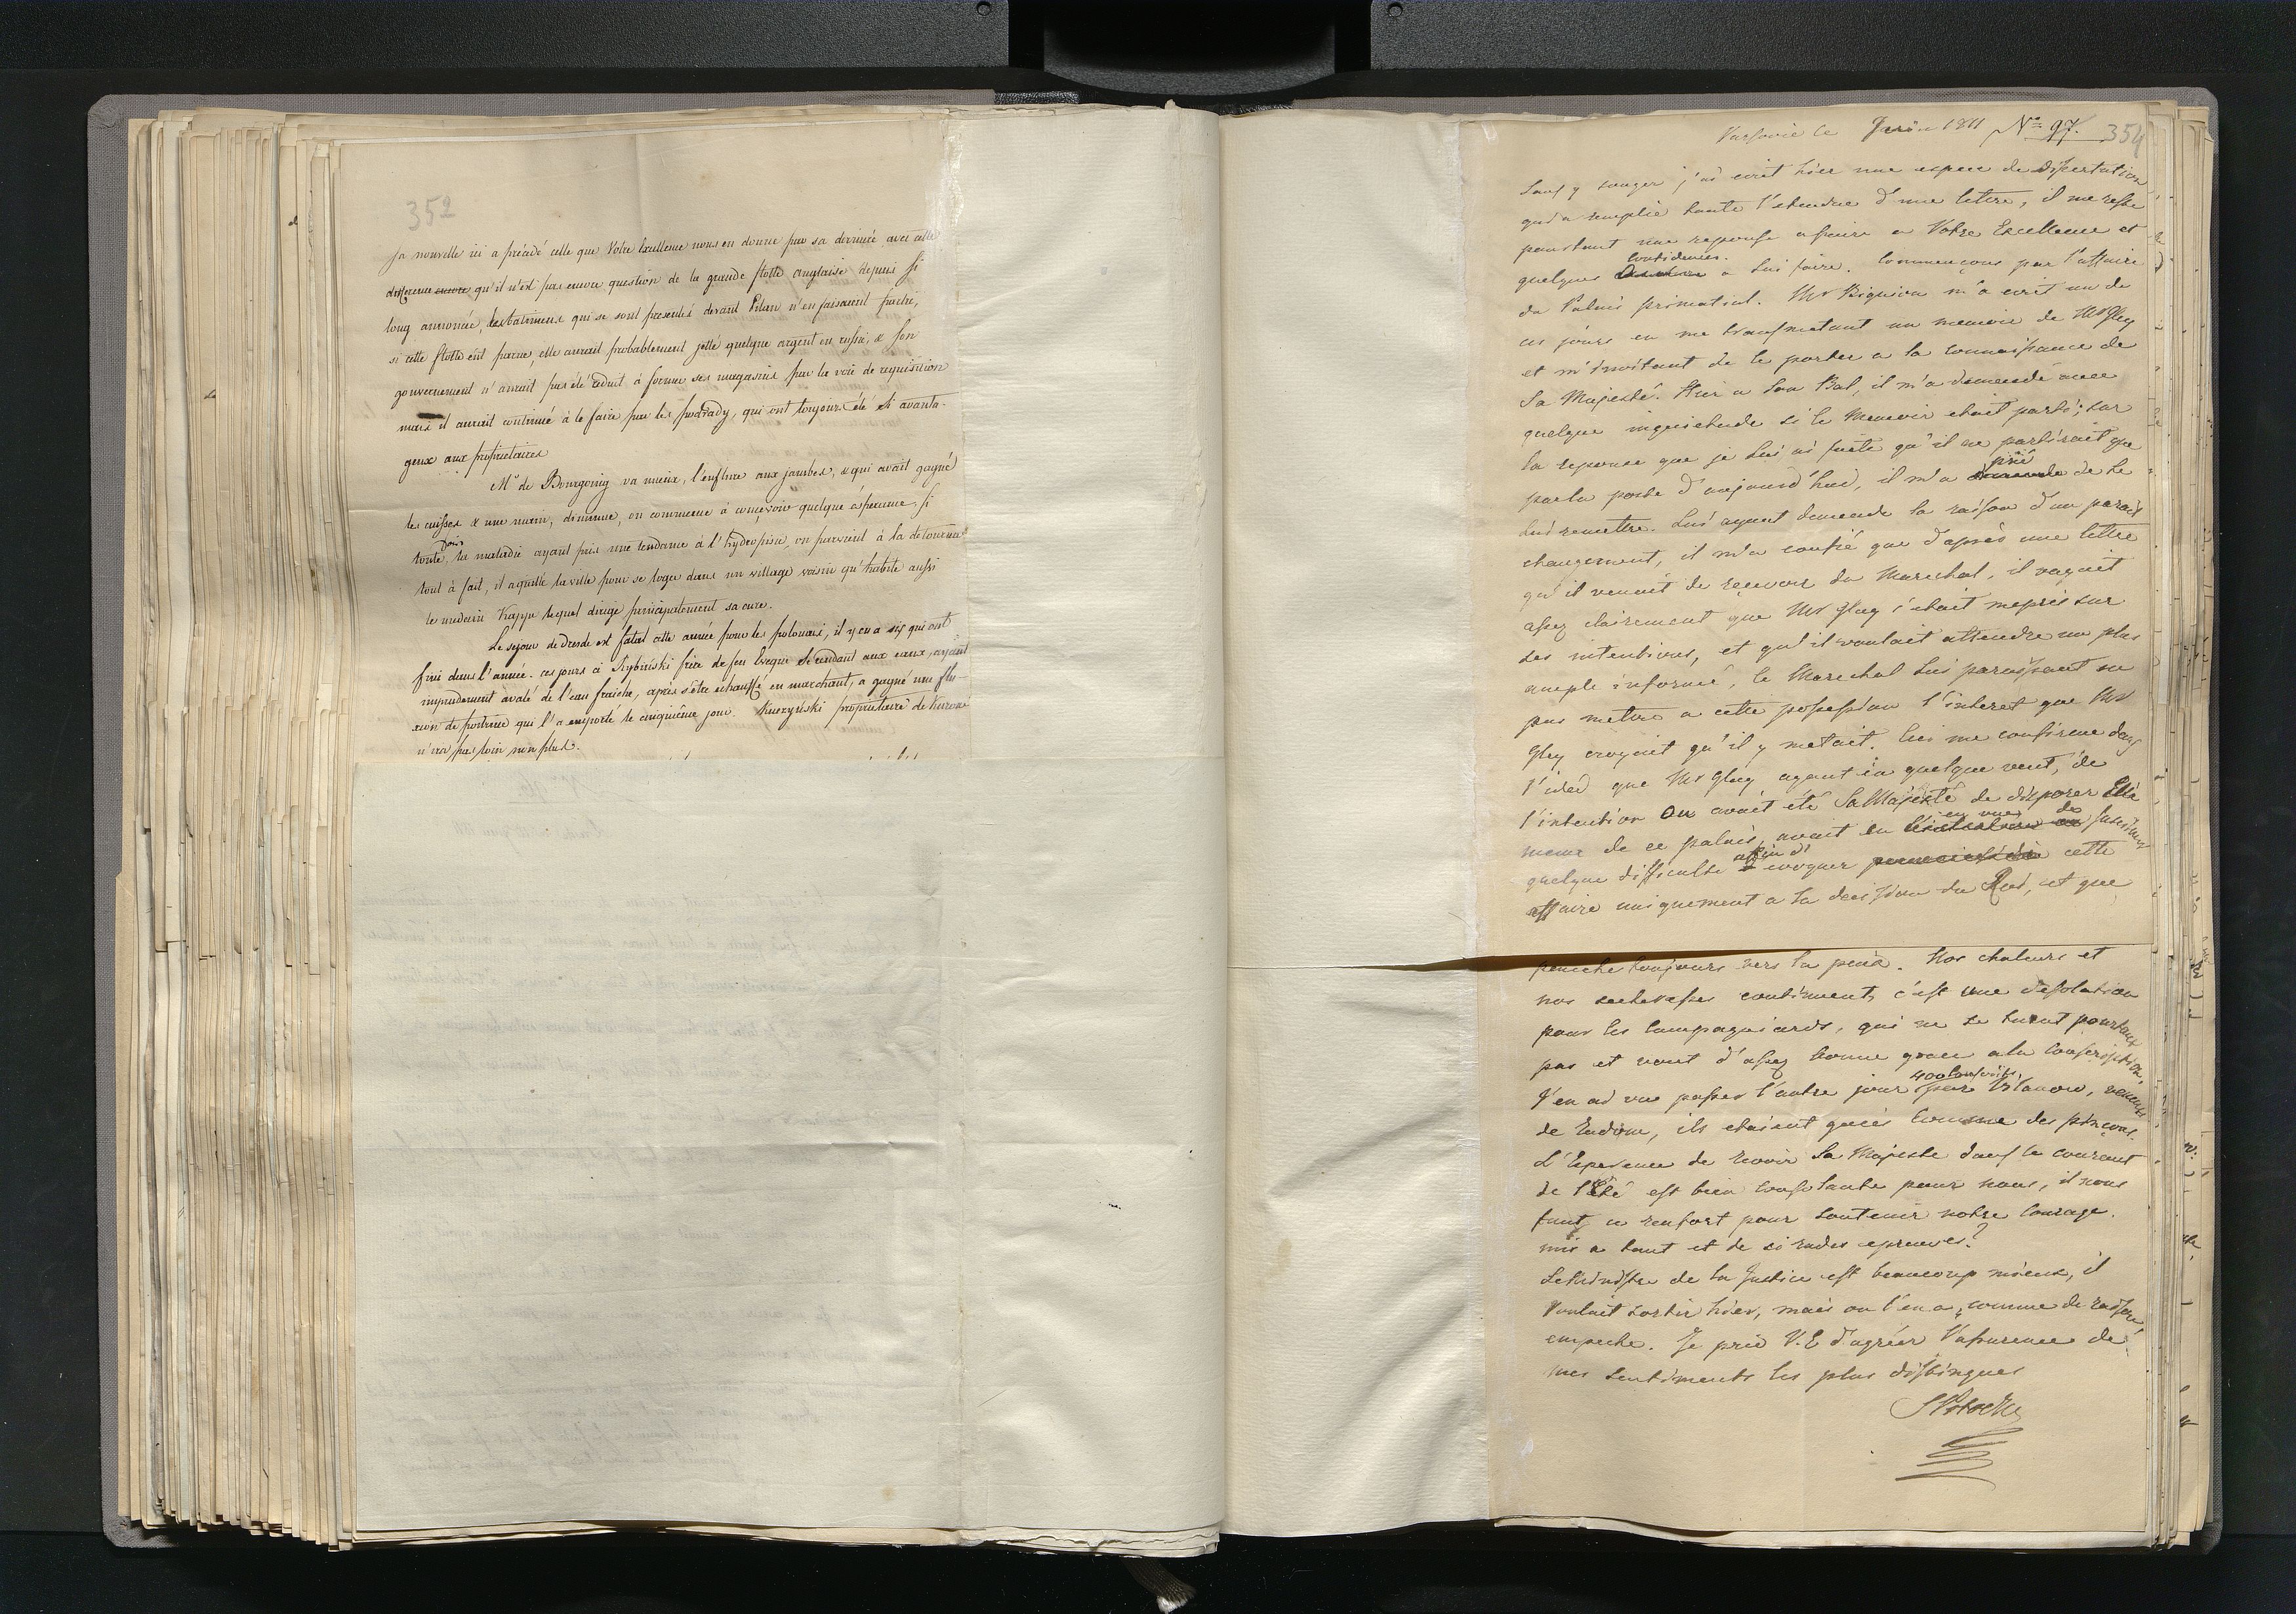 352
sa nouvelle ici a précédé celle que Votre Excellence nous en donne par sa dernière avec cette
difference encore qu'il n'est pas encore question de la grande flotte anglaise depuis si
long annoncée, les batimens qui se sont presentés devant Pilau n'en faisaient partie,
si cette flotte eut parue, elle aurait probablement jetté quelque argent en russie, & son
gouvernement n'aurait pas été reduit à former ses magasins par la voie de requisition
mais il aurait continué à le faire par les podrady, qui ont toujours été si avanta-
geux aux propriétaires
Mr de Bourgoing va mieux, l'enflure aux jambes, & qui avait gagné
les cuisses & une main, diminue, on commence à conçevoir quelque ésperance, si
toute fois la maladie ayant pris une tendance à l'hydropisie, on parvient à la détourner
tout à fait, il a quitté la ville pour se loger dans un village voisin qu'habite aussi
le medecin Kapp lequel dirige principalement sa cure.
Le sejour de Dresde est fatal cette année pour les polonais, il y en a six qui ont
fini dans l'année. ces jours ci Rybinski frère de feu Eveque se rendant aux eaux, ayant
imprudement avalé de l'eau fraiche, après s'être echauffé en marchant, a gagné une flu-
xion de poitrine qui l'a emporté le cinquième jour. Kuczynski propriétaire de
n'ira pas loin non plus.
Varsovie le Juin 1811 No 97. 354
Sans y songer j'ai ecrit hier une espece de dissertation
qui a remplie toute l'etendue d'une lettre, il me reste
pourtant une reponse a faire a Votre Excellence et
confidences.
quelques a lui faire. Commençons par l'affaire
du Palais primatial. Mr Bignion m'a ecrit un de
ces jours en me transmetant un memoire de Mr Gley
et m'invitant de le porter a la connaissance de
Sa Majesté. Hier a son Bal, il m'a demandé avec
quelque inquietude si le Memoir etait parti; sur
la reponse que je lui ai faite qu'il ne partirait que
prié
par la poste d'aujourd'hui, il m'a demandé de le
lui remettre. Lui ayant demandé la raison d'un pareil
changement, il m'a confié que d'après une lettre
qu'il venait de reçevoir du Marechal, il voyait
assez clairement que Mr Gley s'etait mepris sur
ses intentions, et qu'il voulait attendre un plus
ample informé, le Marechal lui paraissant ne
pas metre a cette possession l'interet que Mr
Gley croyait qu'il y metait. Ceci me confirme dans
l'idée que Mr Gley ayant eu quelque vent, de
l'intention ou avait été Sa Majesté de disposer Elle
en vue de
meme de ce palais, avait eu susciter
afin d'
quelque difficulté evoquer cette
affaire uniquement a la decision du Roi, et que
penche toujours vers la paix. Nos chaleurs et
nos secheresses continuent, c'est une desolation
pour les campagnards, qui ne se tuent pourtant
pas et vont d'assez bonne grace a la conscription,
400 conscrits,
J'en ai vue passer l'autre jour par Vilanow, venants
de Radom, ils etaient gaies comme des pinçons.
L'Esperance de revoir Sa Majesté dans le courant
de l'Eté est bien consolante pour nous, il nous
faut ce renfort pour soutenir notre Courage.
mis a tant et de si rudes epreuves?
Le Ministre de la Justice est beaucoup mieux, il
voulait sortir hier, mais on l'en a, comme de raison,
empeché. Je prie V.E d'agréer l'assurance de
mes sentiments les plus distingués
SPotocki